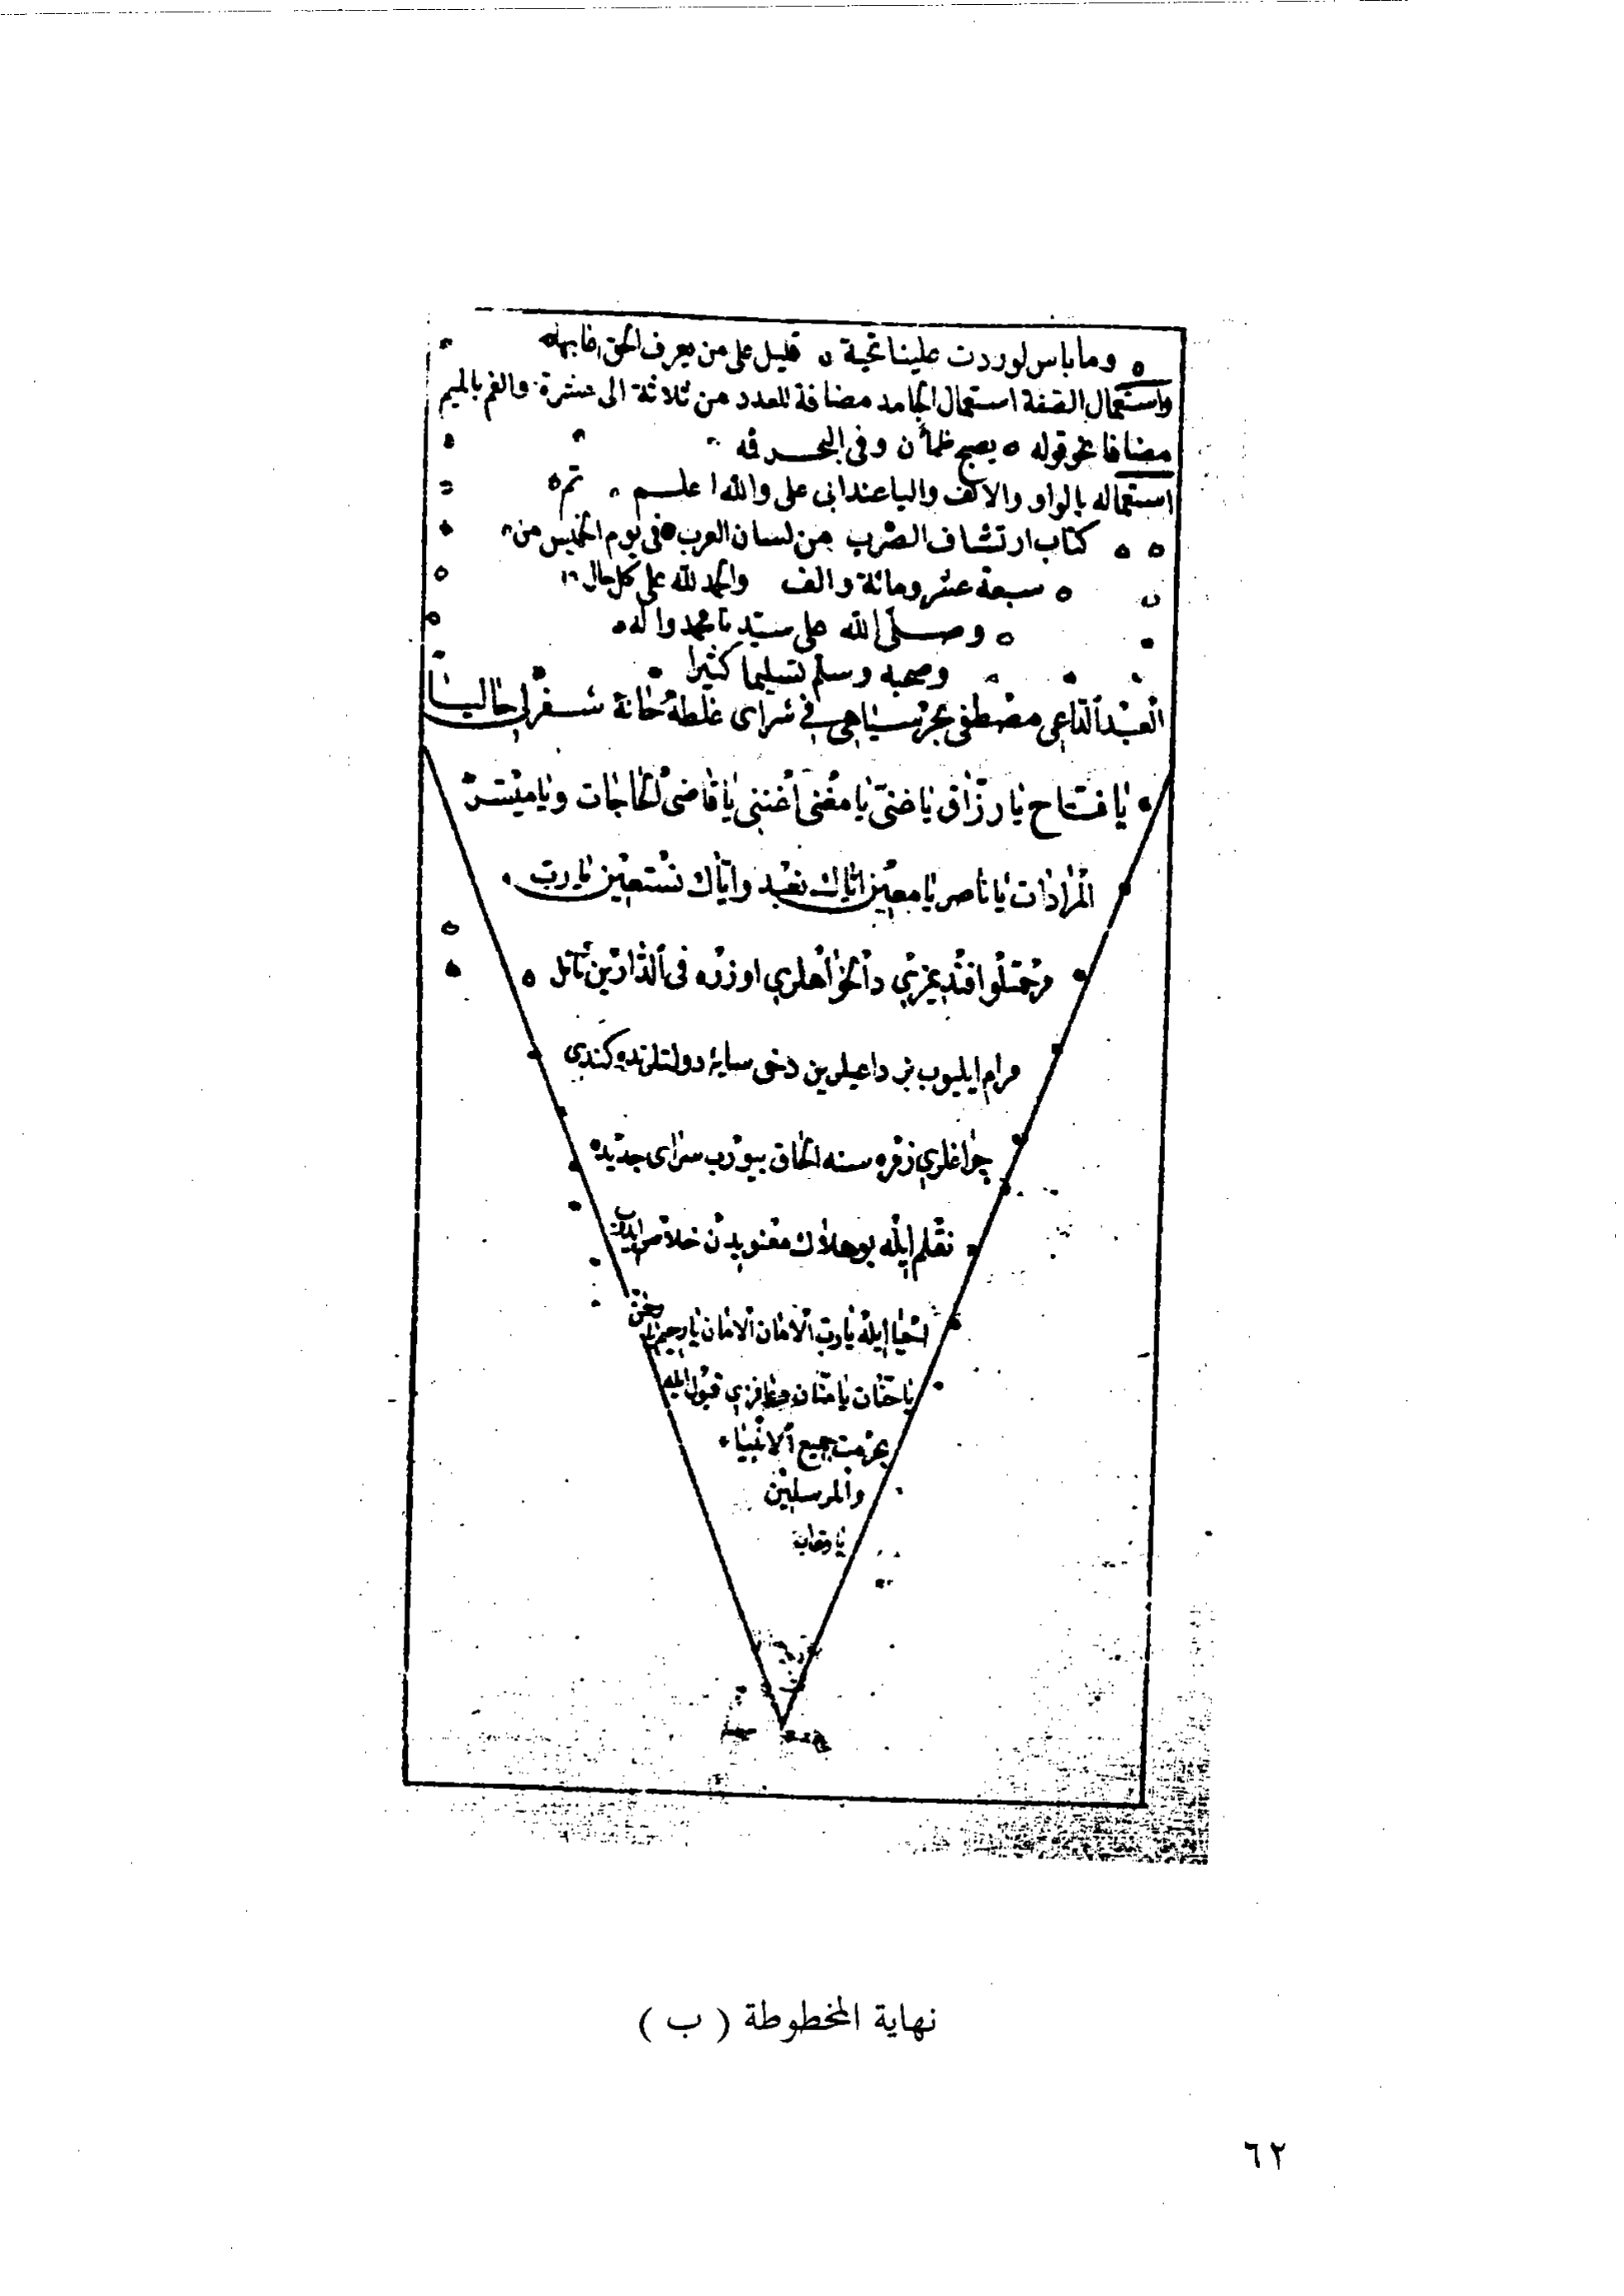 وما باس لو ردت علينا تحية ه قليل على من يعرف الحق عابها
واستعمال الصفة استعمال الجامد مضافة للعدد من ثلاثة الى عشرة والفم بالميم
مضافا نحو قوله ه يصبح ظمأن وفي البحر فه
استعماله بالواو والالف واليا عند ابى على والله اعلم تم
كتاب ارتشاف الضرب من لسان العرب فى يوم الخميس من
سبعة عشر ومائة والف والحمد لله على كل حال
وصلى الله على سيدنا محمد واله
وصحبه وسلم تسليما كثيرا
العبد الداعى مصطفى في سراى غلطه خانۀ سفرلى حاليا
يا فتاح يا رزاق يا غنى يا مغنى اغننى يا قاضى الحاجات ويا ميسر
المرادات يا ناصر يا معين اياك نعبد واياك نستعين يا رب
دلخواهلرى اوزره فى الدارين نائل
مرام ايليوب بز داعيلرين دخى سايۀ دولتلرنده كندى
چراغلرى زمره سنه الحاق بيورب سراى جديده
نقلم ايله بو هلاك معنويدن خلاص
احيا ايله يا رب الامان الامان يا رحيم
يا حنان يا منان دعامزى قبول ايله
بحرمت جميع الانبياء
والمرسلين
نهاية المخطوطة ( ب )
٦٢